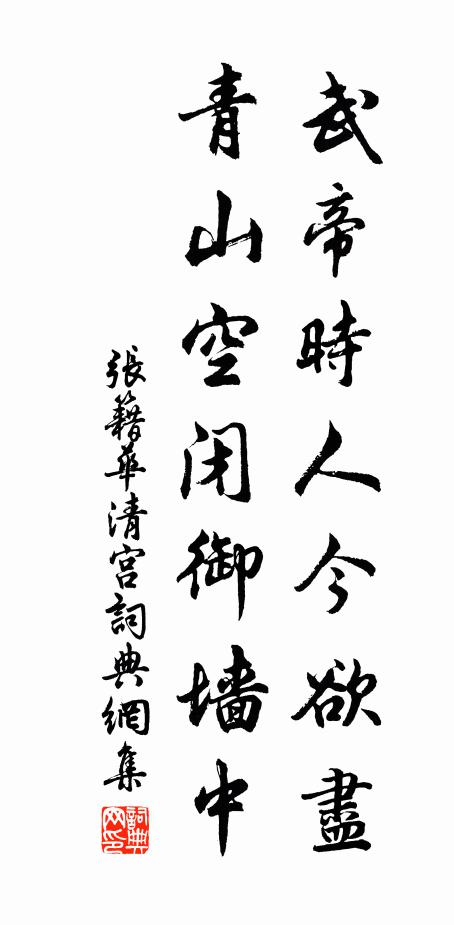 武帝時人今欲盡
青山空闭御墙中
張籍華清宮詞典網集
詞典网印